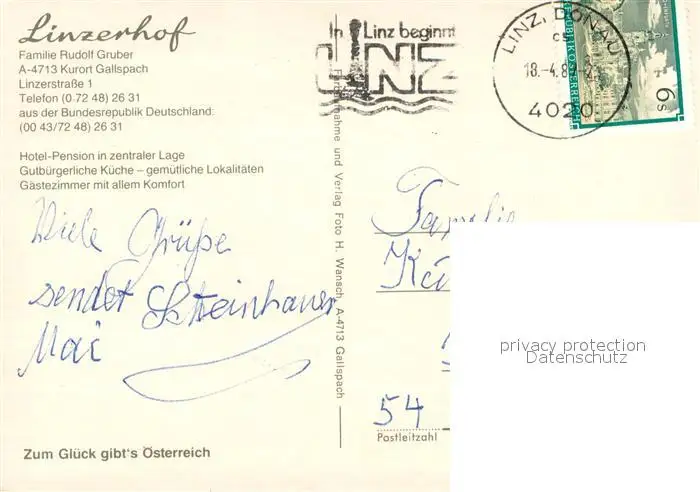 Linzerhof
Familie Rudolf Gruber
A-4713 Kurort Gallspach
Linzerstraße 1
Telefon (0 72 48) 26 31
aus der Bundesrepublik Deutschland:
(00 43/72 48) 26 31
Hotel-Pension in zentraler Lage
Gutbürgerliche Küche – gemütliche Lokalitäten
Gästezimmer mit allem Komfort
Viele Grüße
sendet Steinhauer
Mai
Zum Glück gibt's Österreich
Verlag Foto H. Wansch, A-4713 Gallspach
In Linz beginnt
LINZ
LINZ, DONAU
18.-4.8
4020
REPUBLIK ÖSTERREICH
6s
Familie
54
Postleitzahl
privacy protection
Datenschutz